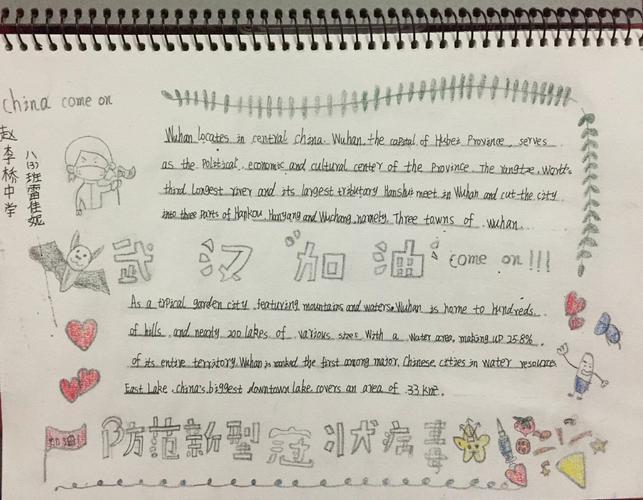 China come on
赵李桥中学
八(3)班雷佳妮
Wuhan locates in central China. Wuhan, the capital of Hubei Province, serves
as the Political, economic and cultural center of the Province. The Yangtze, World's
third Longest river and its largest tributary Hanshui meet in Wuhan and cut the city
into three parts of Hankou, Hanyang and Wuchang, namely, Three towns of wuhan.
武汉加油 come on !!!
As a tpical garden city, featuring mountains and waters, Wuhan is home to Hundreds
of hills and nearly 200 lakes of various sizes. With a water area, making up 25.8%
of its entire territory, Wuhan is ranked the first among major Chinese cities in water resources
East Lake, China's biggest downtown lake, covers an area of 33 km².
加油
防范新型冠状病毒